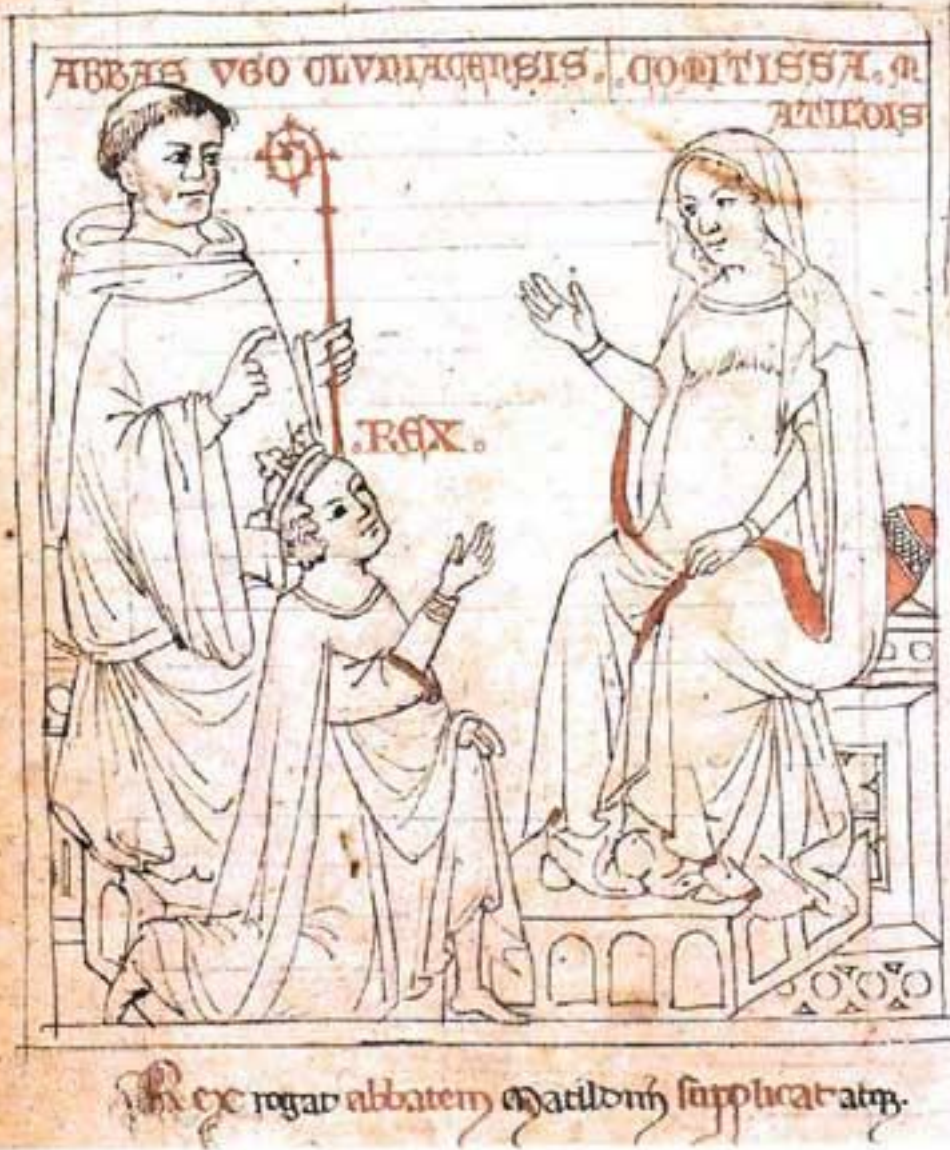 ABBAS VGO CLVNIACENSIS. .COMITISSA. M
ATILDIS
.REX.
Rex rogat abbatem Matildim supplicat atq3.